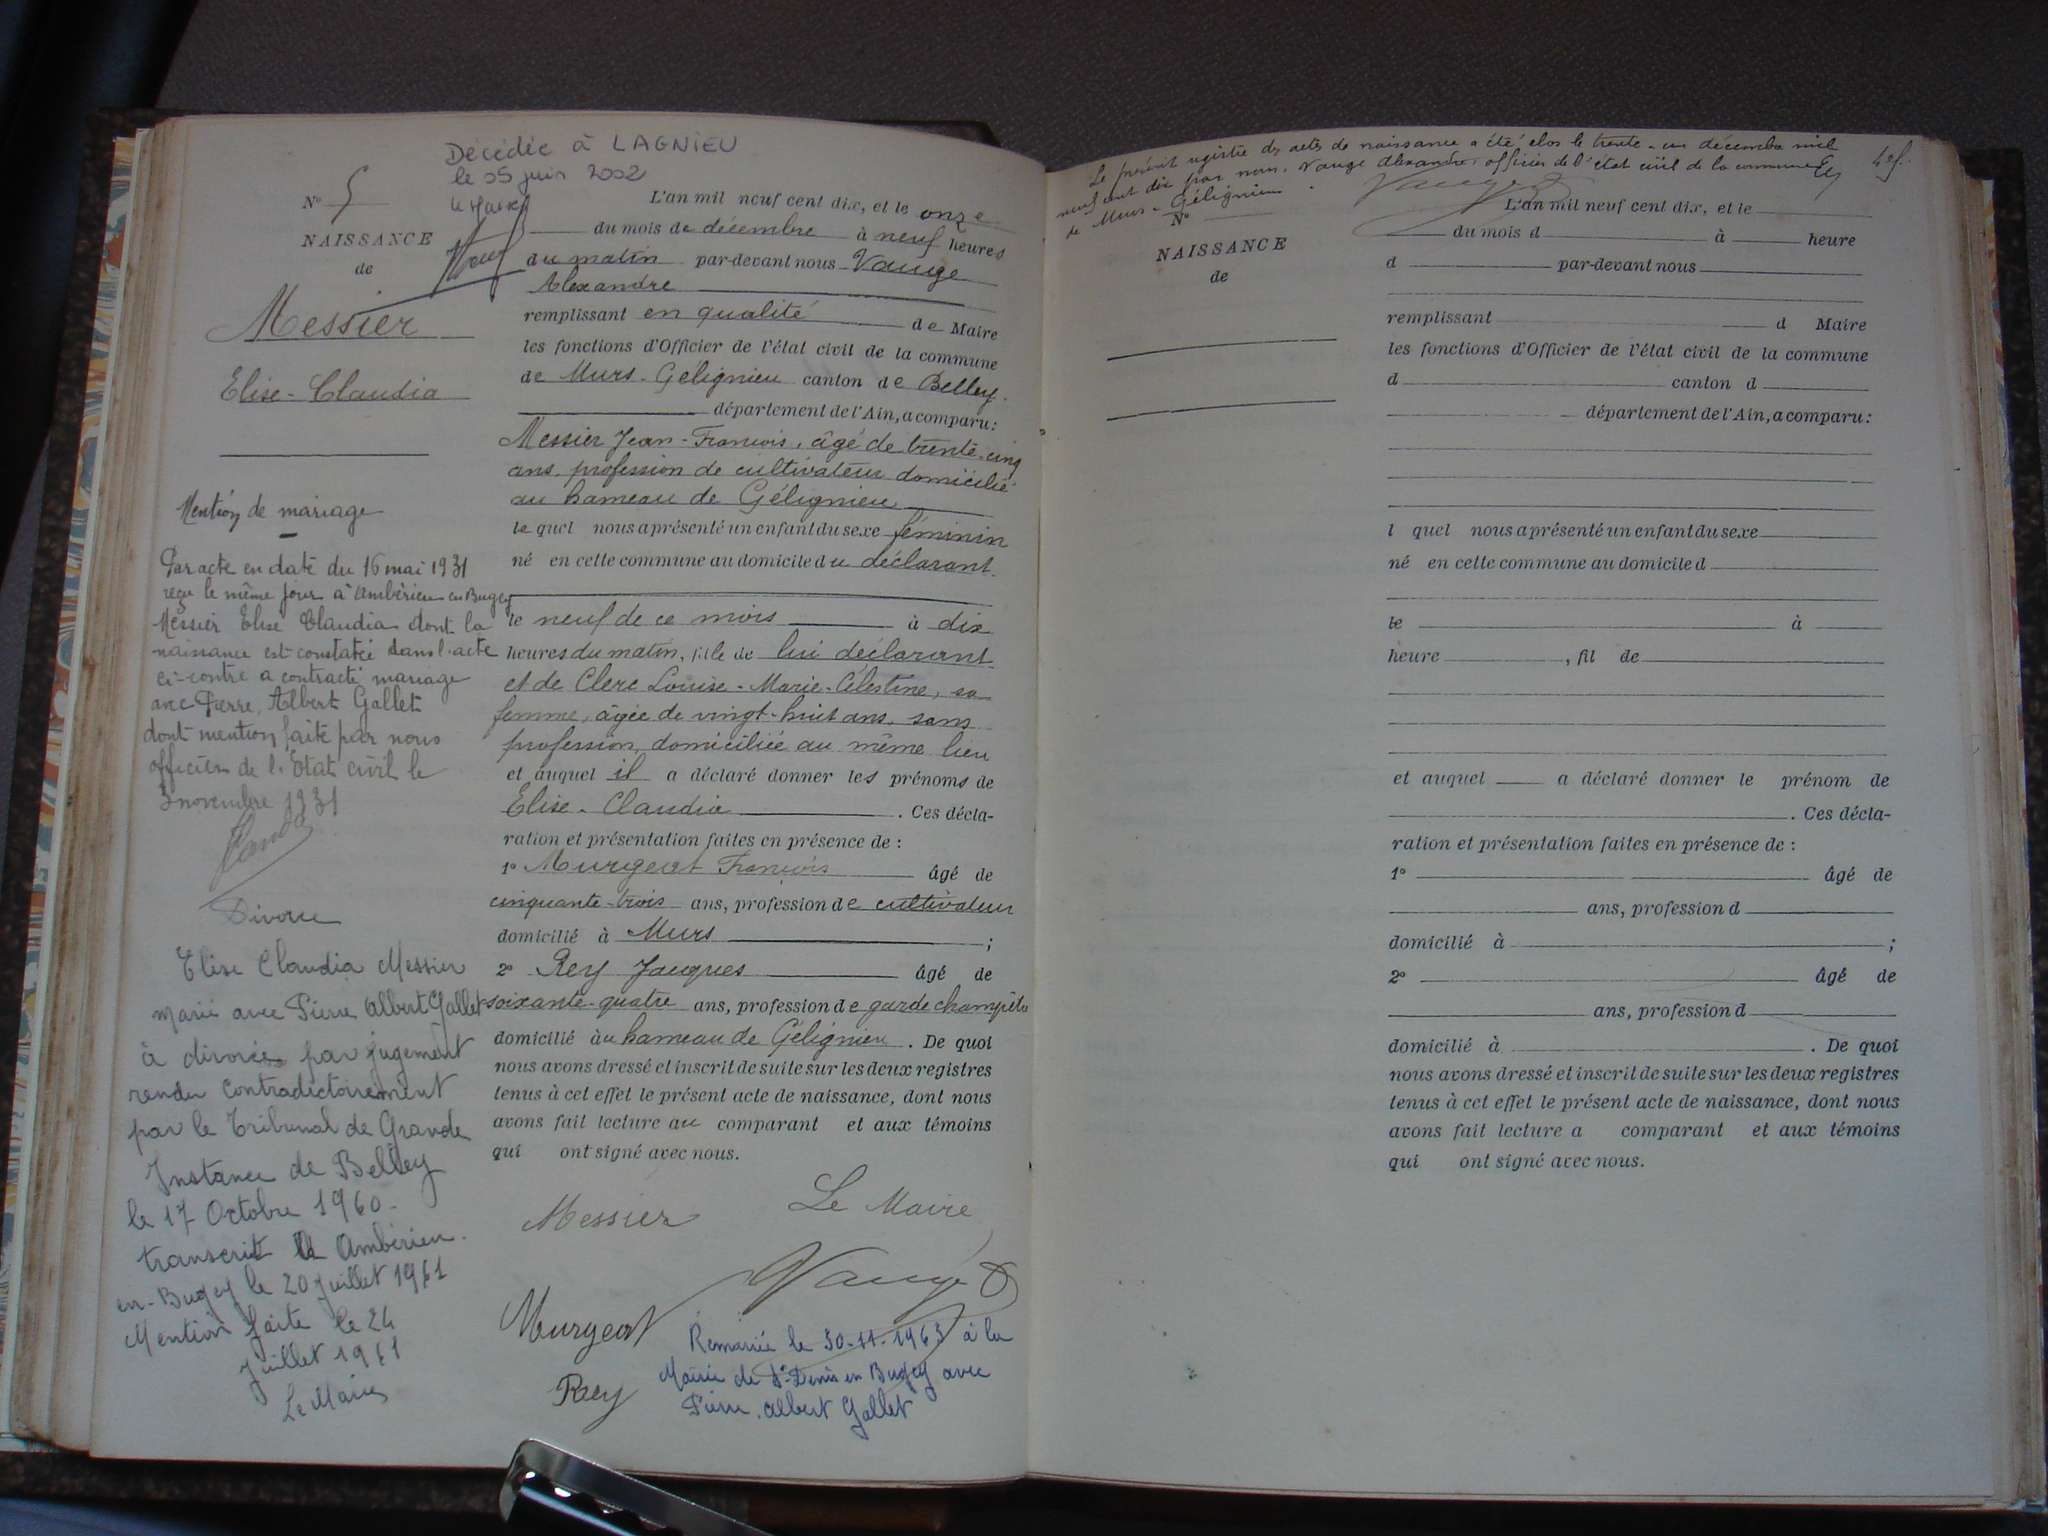 Décédée à LAGNIEU
le 05 juin 2002
le Maire
N° 5
NAISSANCE
de
Messier
Elise-Claudia
Mention de mariage
Par acte en date du 16 mai 1931
reçu le même jour à Ambérieu en Bugey
Messier Elise Claudia dont la
naissance est constatée dans l'acte
ci-contre a contracté mariage
avec Pierre, Albert Gallet
dont mention faite par nous
officier de l'Etat civil le
3 novembre 1931
Divorce
Elise Claudia Messier
marié avec Pierre Albert Gallet
à divorcée par jugement
rendu contradictoirement
par le Tribunal de Grande
Instance de Belley
le 17 Octobre 1960-
transcrit à Ambérieu-
en-Bugey le 20 juillet 1961
Mention faite le 24
juillet 1961
Le Maire
L'an mil neuf cent dix, et le onze
du mois de décembre à neuf heures
du matin par-devant nous Vauge
Alexandre
remplissant en qualité de Maire
les fonctions d'Officier de l'état civil de la commune
de Murs-Gelignieu canton de Belley.
département de l'Ain, a comparu:
Messier Jean-François, âgé de trente-cinq
ans, profession de cultivateur domicilié
au hameau de Gélignieu
le quel nous a présenté un enfant du sexe féminin
né en cette commune au domicile du déclarant.
le neuf de ce mois à dix
heures du matin, fille de lui déclarant
et de Clerc Louise-Marie-Célestine, sa
femme, âgée de vingt-huit ans, sans
profession, domiciliée au même lieu
et auquel il a déclaré donner les prénoms de
Elise-Claudia . Ces décla-
ration et présentation faites en présence de :
1° Murgeat François âgé de
cinquante-trois ans, profession de cultivateur
domicilié à Murs ;
2° Rey Jacques âgé de
soixante-quatre ans, profession de garde champêtre
domicilié au hameau de Gélignieu . De quoi
nous avons dressé et inscrit de suite sur les deux registres
tenus à cet effet le présent acte de naissance, dont nous
avons fait lecture au comparant et aux témoins
qui ont signé avec nous.
Messier
Le Maire
Vauge
Murgeat
Rey
Remariée le 30-11-1963 à la
Mairie de St-Denis en Bugey avec
Pierre, Albert Gallet
Le présent registre des actes de naissance a été clos le trente-un décembre mil
neuf cent dix par nous, Vauge Alexandre, officier de l'état civil de la commune
de Murs-Gélignieu.
Vauge
N°
NAISSANCE
de
L'an mil neuf cent dix, et le
du mois d à heure
d par-devant nous
remplissant d Maire
les fonctions d'Officier de l'état civil de la commune
d canton d
département de l'Ain, a comparu:
l quel nous a présenté un enfant du sexe
né en cette commune au domicile d
le à
heure , fil de
et auquel a déclaré donner le prénom de
. Ces décla-
ration et présentation faites en présence de :
1° âgé de
ans, profession d
domicilié à ;
2° âgé de
ans, profession d
domicilié à . De quoi
nous avons dressé et inscrit de suite sur les deux registres
tenus à cet effet le présent acte de naissance, dont nous
avons fait lecture a comparant et aux témoins
qui ont signé avec nous.